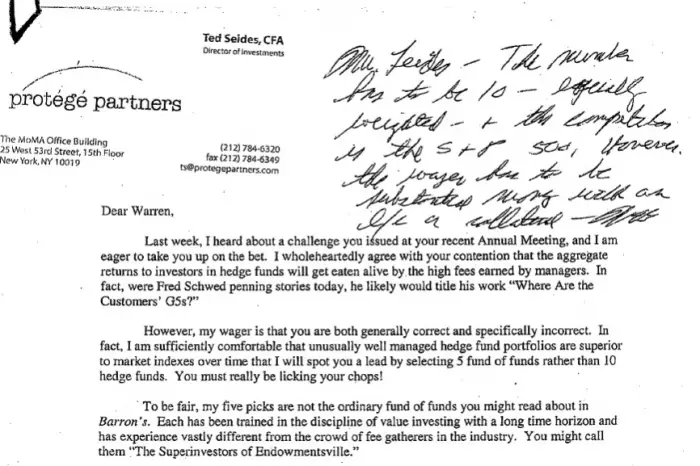 Ted Seides, CFA
Director of Investments
protégé partners
The MoMA Office Building
25 West 53rd Street, 15th Floor
New York, NY 10019
(212) 784-6320
fax (212) 784-6349
ts@protegepartners.com
Mr. Seides – The number
has to be 10 – equally
weighted – + the competitor
is the S+P 500, However,
the wager has to be
substantial money with an
l/c or collateral –
Dear Warren,
Last week, I heard about a challenge you issued at your recent Annual Meeting, and I am
eager to take you up on the bet. I wholeheartedly agree with your contention that the aggregate
returns to investors in hedge funds will get eaten alive by the high fees earned by managers. In
fact, were Fred Schwed penning stories today, he likely would title his work "Where Are the
Customers' G5s?"
However, my wager is that you are both generally correct and specifically incorrect. In
fact, I am sufficiently comfortable that unusually well managed hedge fund portfolios are superior
to market indexes over time that I will spot you a lead by selecting 5 fund of funds rather than 10
hedge funds. You must really be licking your chops!
To be fair, my five picks are not the ordinary fund of funds you might read about in
Barron's. Each has been trained in the discipline of value investing with a long time horizon and
has experience vastly different from the crowd of fee gatherers in the industry. You might call
them "The Superinvestors of Endowmentsville."